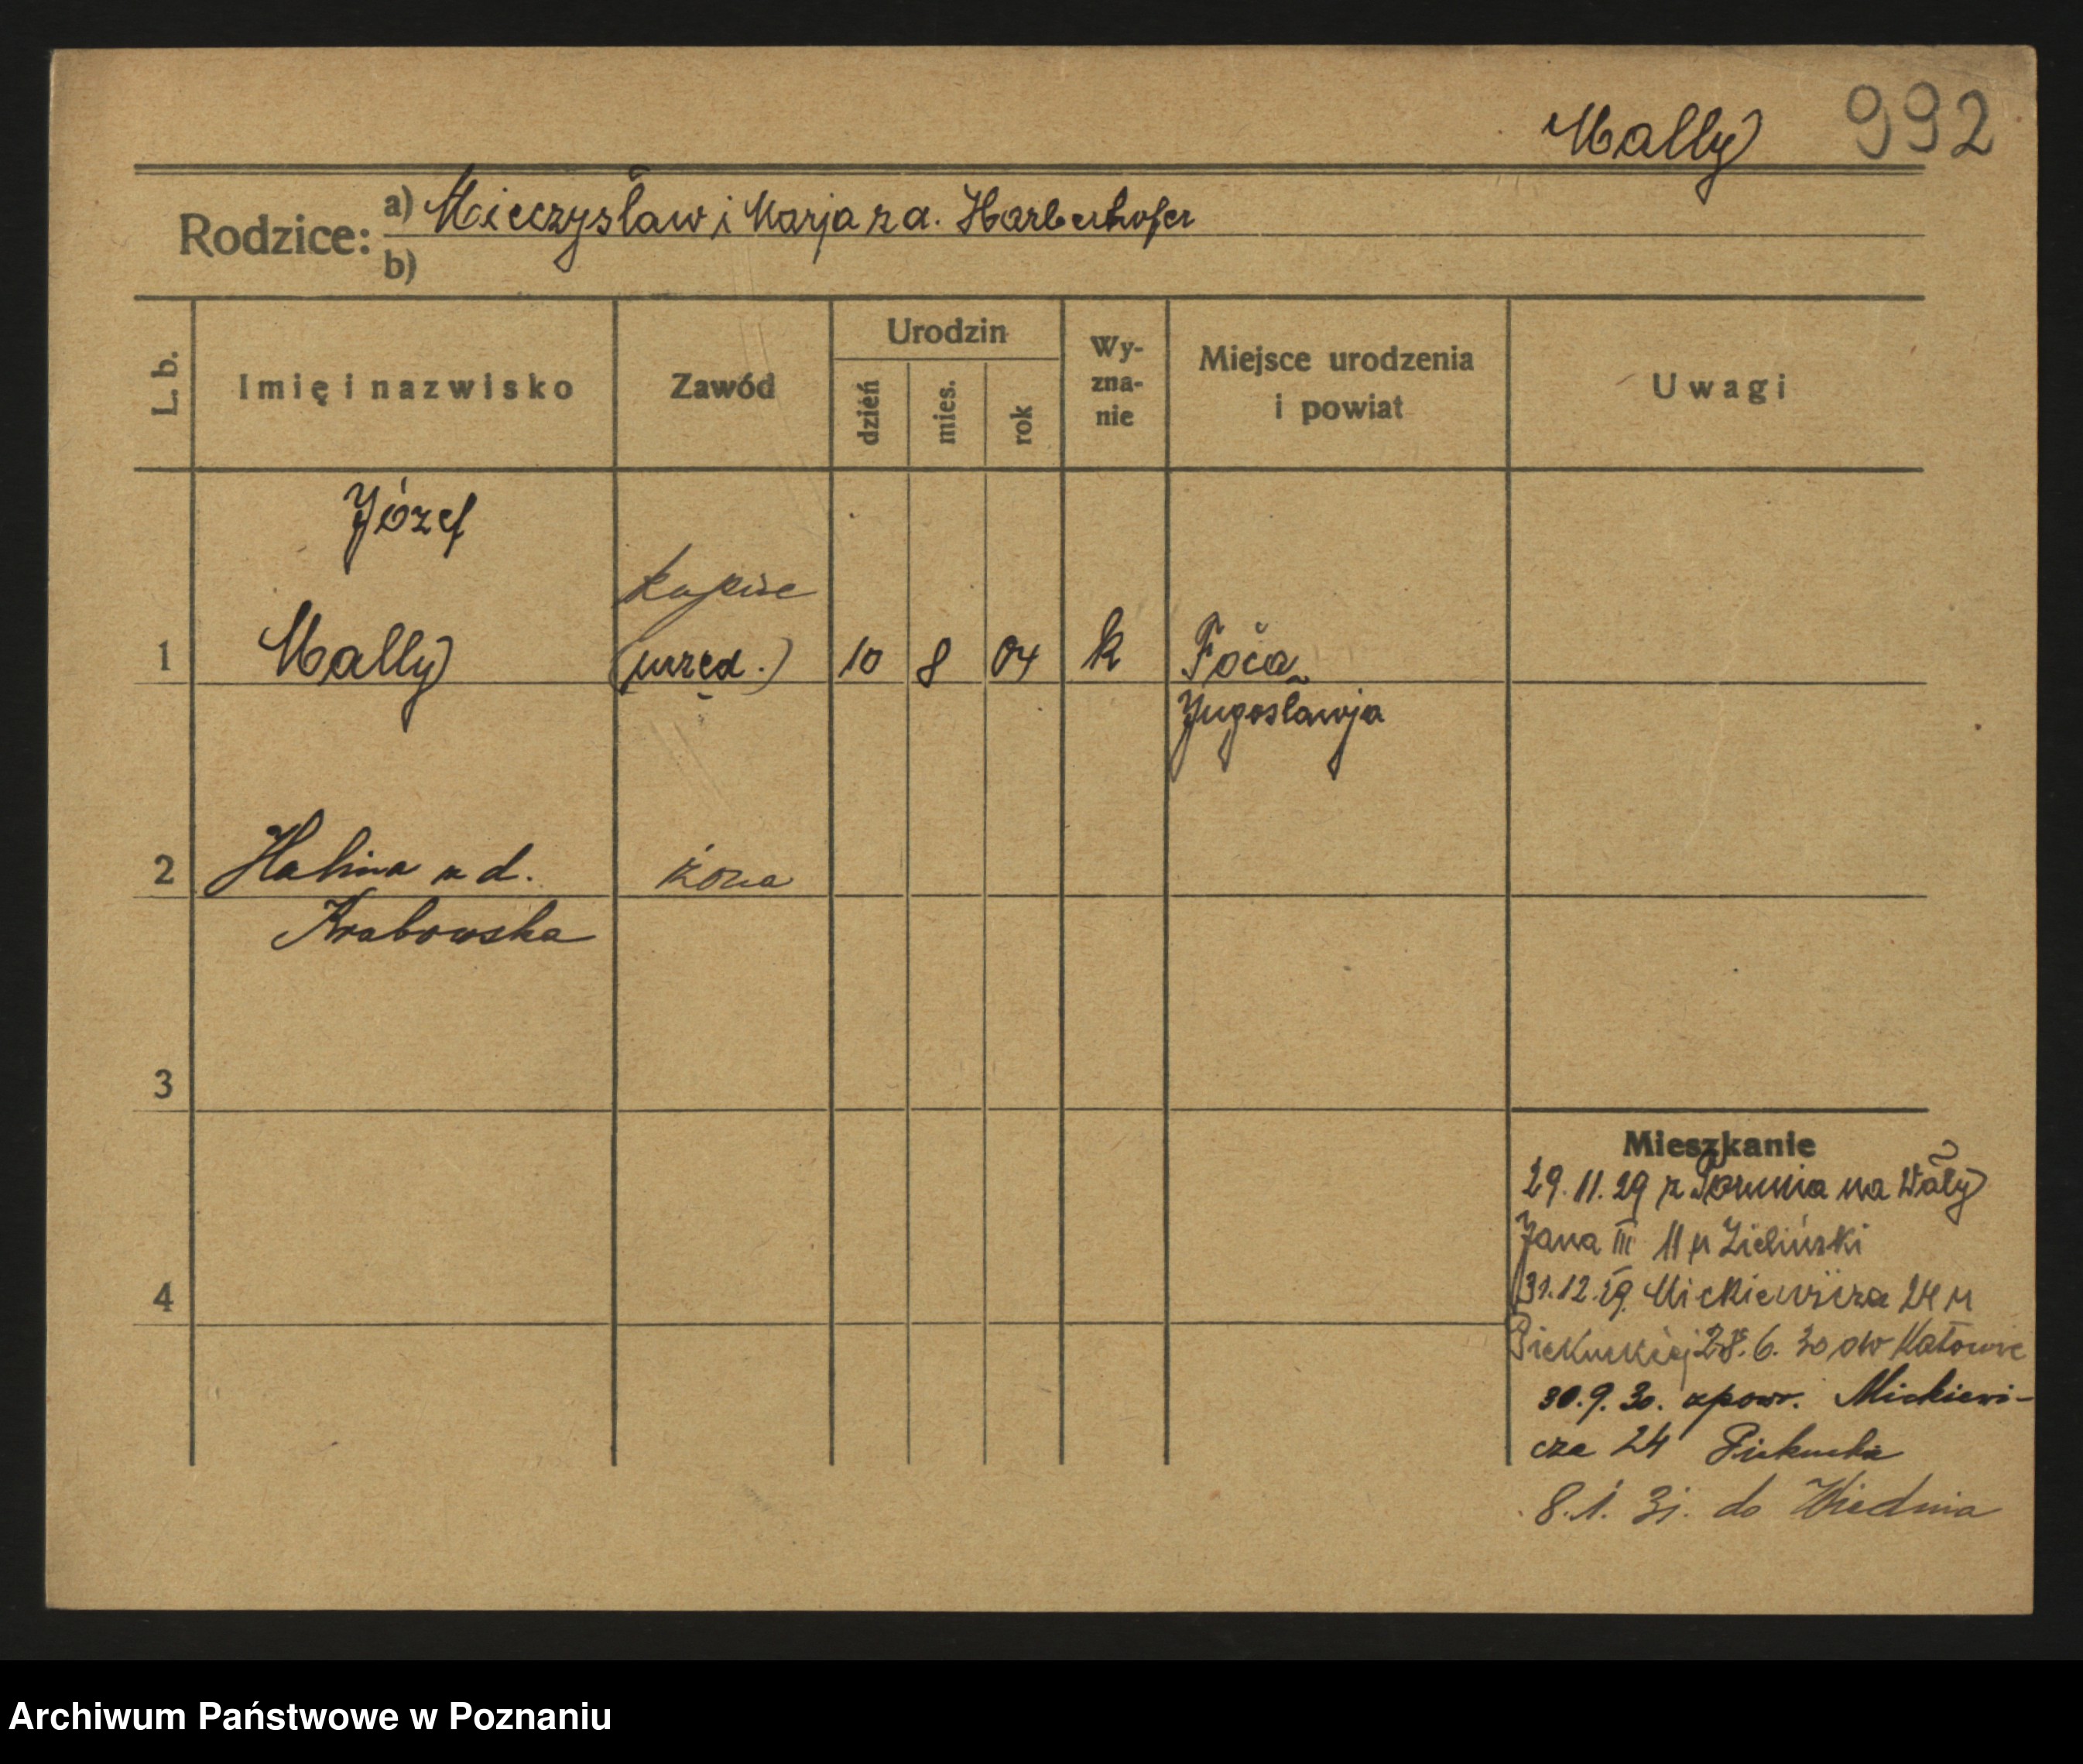 Mally 992
Rodzice: a) Mieczysław i Marja z d. Harberhofer
b)
L. b. Imię i nazwisko Zawód Urodzin dzień mies. rok Wy-zna-nie Miejsce urodzenia i powiat Uwagi
Józef
kupiec
1 Mally (urzęd.) 10 8 04 k Foča
Jugosławja
2 Halina z d. żona
Krabowska
3
4
Mieszkanie
29.11.29 z Torunia na Wały
Jana III 11 u Zieliński
31.12.29. Mickiewicza 24 u
Piekuckiej 28.6.30 do Katowic
30.9.30. zpow. Mickiewi-
cza 24 Piekucka
8.1.31. do Wiednia
Archiwum Państwowe w Poznaniu